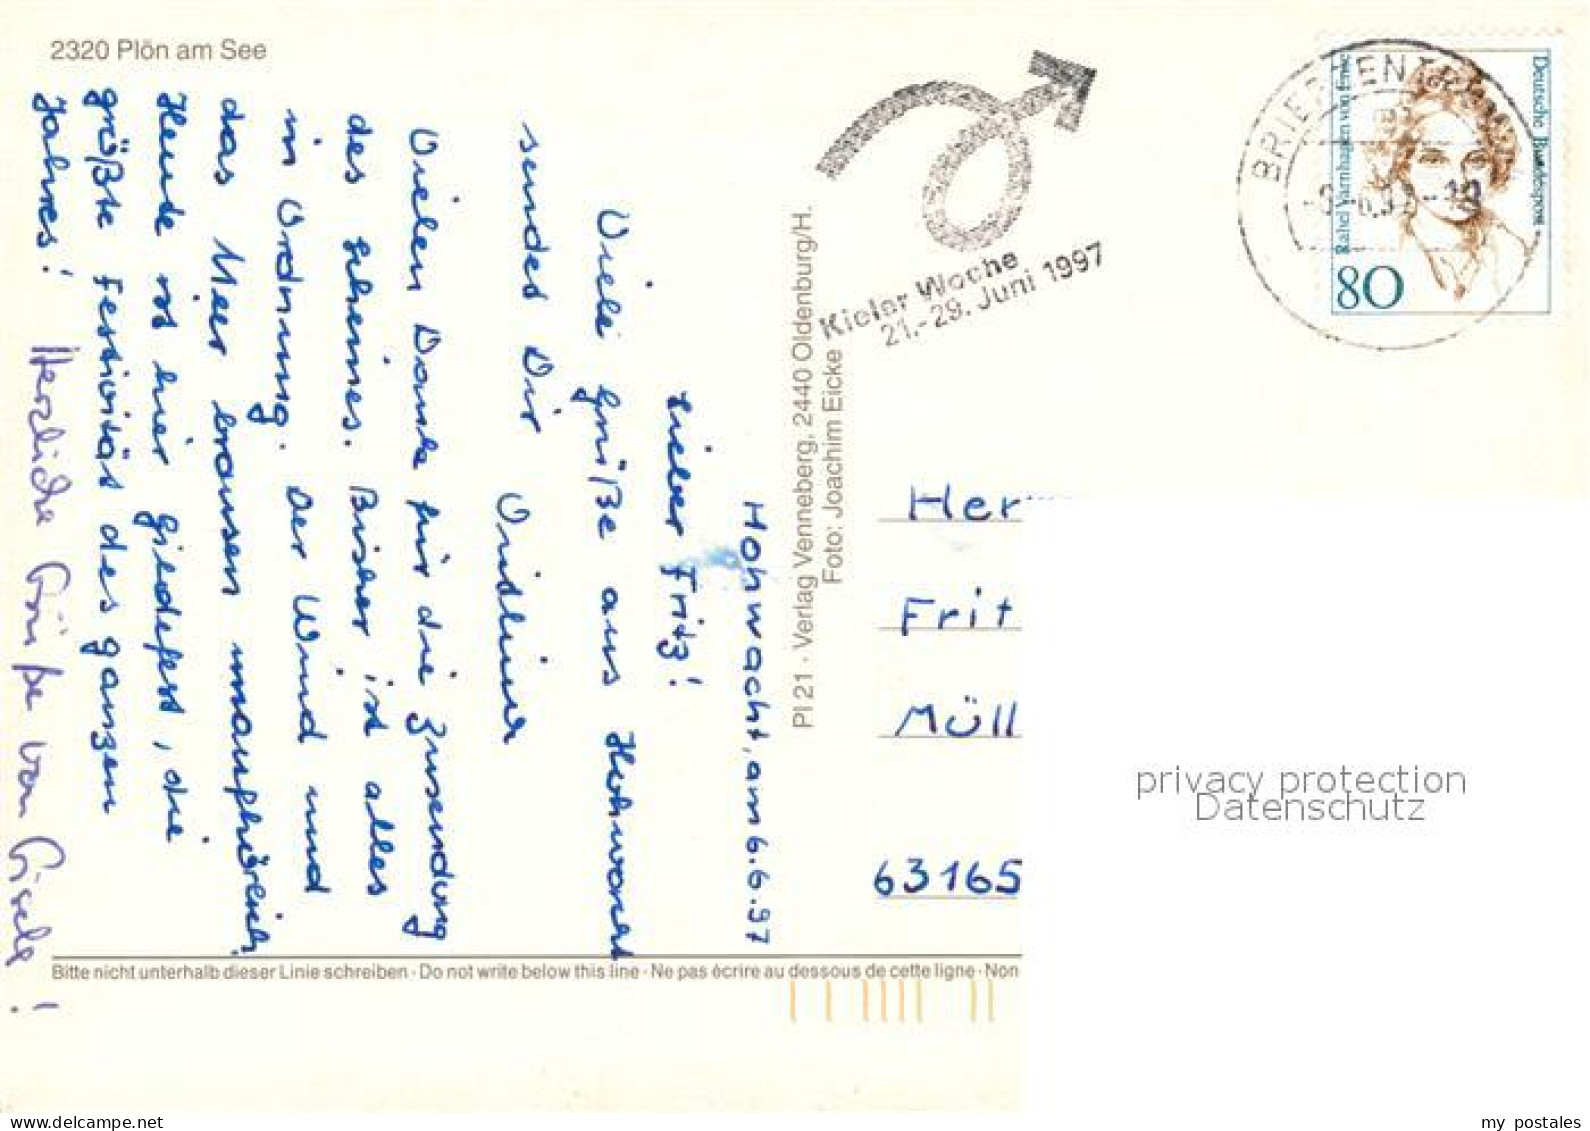 2320 Plön am See
Hohwacht, am 6.6.97
Lieber Fritz!
Viele Grüße aus Hohwacht
sendet Dir
Vielen Dank für die Zusendung
des Scheines. Bisher ist alles
in Ordnung. Der Wind und
das Meer brausen unaufhörlich.
Heute ist hier Gildefest, die
größte Festivität des ganzen
Jahres!
Herzliche Grüße von Gisela!
Pl 21 · Verlag Venneberg, 2440 Oldenburg/H.
Foto: Joachim Eicke
Kieler Woche
21.-29. Juni 1997
BRIEFZENTR
Deutsche Bundespost
Rahel Varnhagen von Ense
80
Her
Frit
Müll
63165
privacy protection
Datenschutz
Bitte nicht unterhalb dieser Linie schreiben · Do not write below this line · Ne pas écrire au dessous de cette ligne · Non
www.ansichtskarten-center.de
my postales